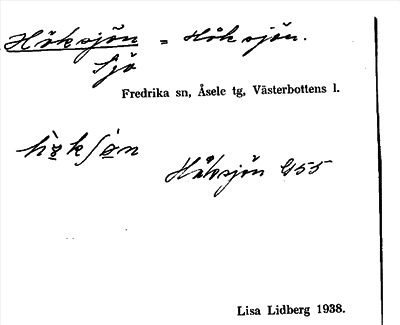 Höksjön = Hök sjön.
Sjö
Fredrika sn, Åsele tg, Västerbottens l.
Höksjön G55
Lisa Lidberg 1938.